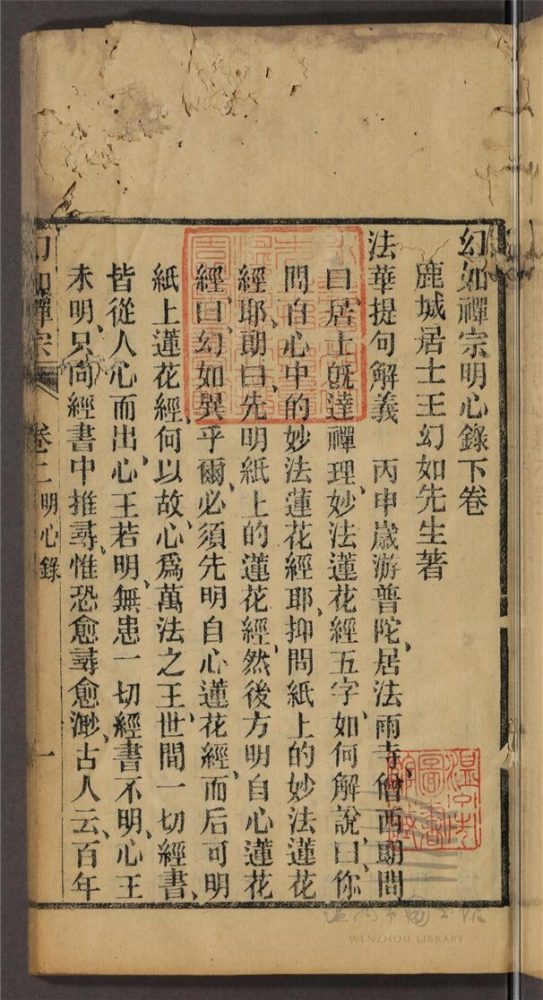 幻如禪宗明心錄下卷
鹿城居士王幻如先生著
法華提句解義　丙申歲游普陀、居法雨寺、僧西朗問
曰、居士旣達禪理、妙法蓮花經五字、如何解說、曰、你
問自心中的妙法蓮花經耶、抑問紙上的妙法蓮花
經耶、朗曰、先明紙上的蓮花經、然後方明自心蓮花
經、曰、幻如異乎爾、必須先明自心蓮花經、而后可明
紙上蓮花經、何以故、心爲萬法之王、世間一切經書、
皆從人心而出、心王若明、無患一切經書不明、心王
未明、只向經書中推尋、惟恐愈尋愈渺、古人云、百年
幻如禪宗
卷二
明心錄
一
溫州市圖書館
WENZHOU LIBRARY